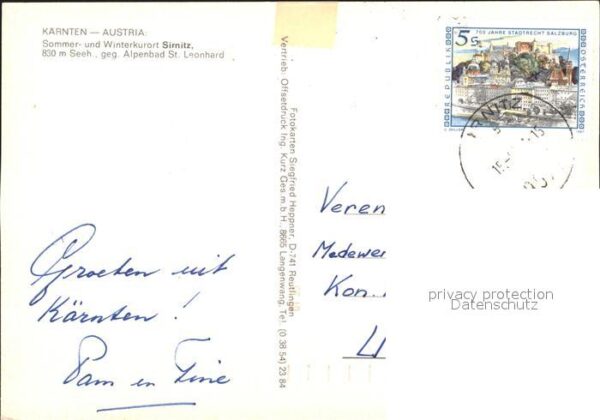 KÄRNTEN — AUSTRIA:
Sommer- und Winterkurort Sirnitz,
830 m Seeh., geg. Alpenbad St. Leonhard
Groeten uit
Kärnten !
Pam en Tine
Vertrieb: Offsetdruck Ing. Kurz Ges.m.b.H., 8665 Langenwang, Tel. (0 38 54) 23 84
Fotokarten Siegfried Heppner, D-741 Reutlingen
700 JAHRE STADTRECHT SALZBURG
5 S
REPUBLIK
ÖSTERREICH
Veren
Medewer
Kon
privacy protection
Datenschutz